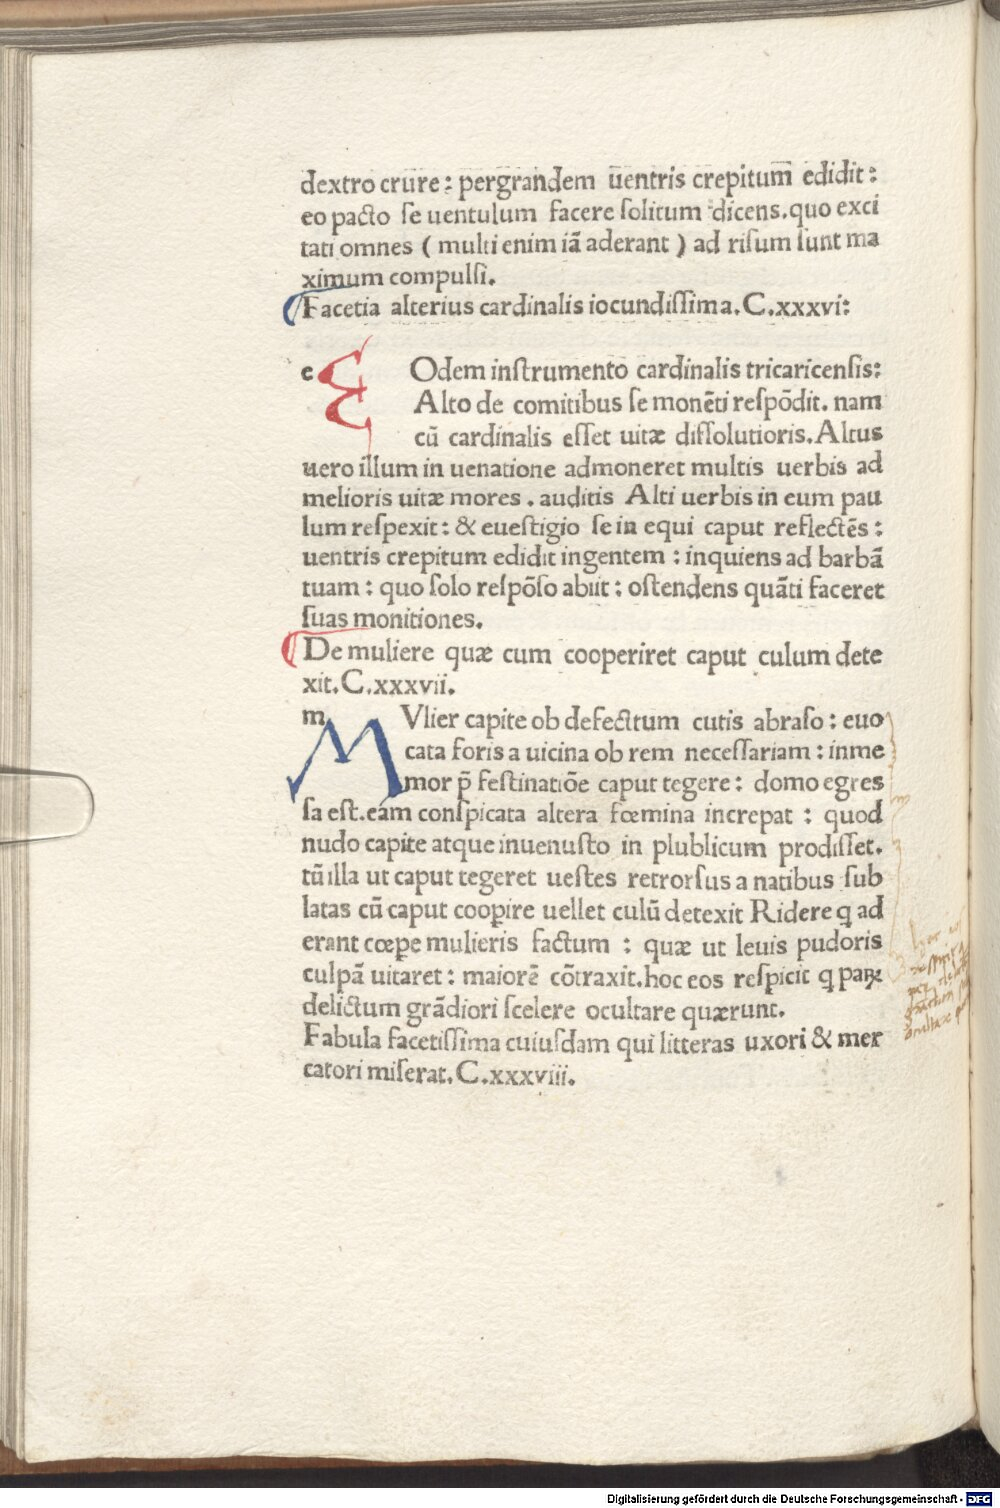 dextro crure : pergrandem uentris crepitum edidit :
eo pacto se uentulum facere solitum dicens. quo exci
tati omnes ( multi enim iā aderant ) ad risum sunt ma
ximum compulsi.
Facetia alterius cardinalis iocundissima. C. xxxvi:
e EOdem instrumento cardinalis tricaricensis:
Alto de comitibus se monēti respōdit. nam
cū cardinalis esset uitæ dissolutioris. Altus
uero illum in uenatione admoneret multis uerbis ad
melioris uitæ mores . auditis Alti uerbis in eum pau
lum respexit : & euestigio se in equi caput reflectēs :
uentris crepitum edidit ingentem : inquiens ad barbā
tuam : quo solo respōso abiit : ostendens quāti faceret
suas monitiones.
De muliere quæ cum cooperiret caput culum dete
xit. C. xxxvii.
m MVlier capite ob defectum cutis abraso : euo
cata foris a uicina ob rem necessariam : inme
mor p̄ festinatiōe caput tegere : domo egres
sa est. eam conspicata altera fœmina increpat : quod
nudo capite atque inuenusto in plublicum prodisset.
tū illa ut caput tegeret uestes retrorsus a natibus sub
latas cū caput coopire uellet culū detexit Ridere q ad
erant cœpe mulieris factum : quæ ut leuis pudoris
culpā uitaret : maiorē cōtraxit. hoc eos respicit q paꝝ
delictum grādiori scelere ocultare quærunt.
Fabula facetissima cuiusdam qui litteras uxori & mer
catori miserat. C. xxxviii.
Digitalisierung gefördert durch die Deutsche Forschungsgemeinschaft - DFG